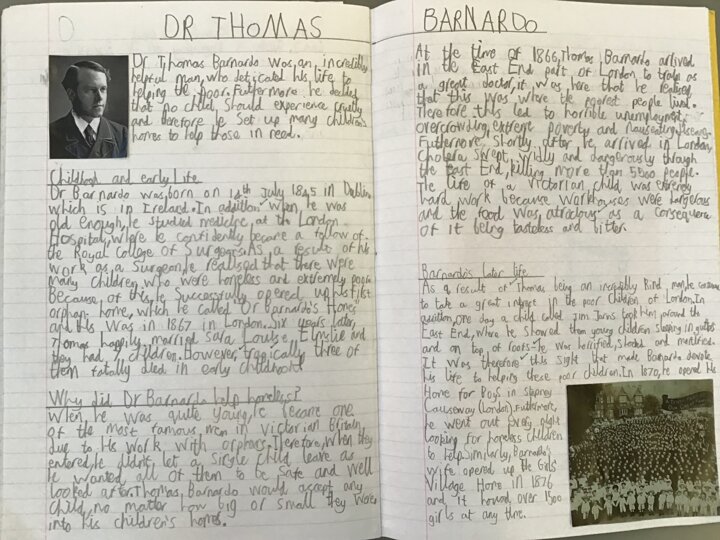 DR THOMAS BARNARDO
Dr Thomas Barnardo was, an incredibly
helpful man, who deticated his life to
helping the poor. Futhermore he decided
that no child, should experience cruelty
and therefore he set up many children's
homes to help those in need.
Childhood and early life
Dr Barnardo was, born on 4th July 1845 in Dublin
which is in Ireland. In addition, when he was
old enough, he studied medicine, at the London
Hospital, where he confidently became a fellow of
the Royal College of Surgeons. As a result of his
work as, a surgeon, he realised that there were
many children, who were homeless and extremely poor.
Because of this, he successfully opened up his first
orphan home, which he called Dr Barnardo's Homes
and this was in 1867 in London. Six years later,
Thomas happily, married Sara Louise Elmslie and
they had 7 children. However, tragically three of
them totally died in early childhood!
Why did Dr Barnardo help homeless?
When, he was quite young, he became one
of the most famous, men in Victorian Britain,
due to his work with orphans. Therefore, when they
entered, he didn't, let a single child leave as
he wanted, all of them to be safe and well
looked after. Thomas, Barnardo would accept any
child, no matter how big or small they were
into his children's homes.
At the time of 1866, Thomas Barnardo arrived
in the East End part of London to train as
a great doctor, it was here that he realised
that this was where the poorest people lived.
Therefore this led to horrible unemployment,
overcrowding, extreme poverty and nauseating disease.
Futhermore, shortly after he arrived in London,
Cholera swept, wildly and dangerously through
the East End, killing more than 5500 people.
The life of a Victorian child, was extremely
hard work because workhouses were dangerous
and the food was, atrocious as a consequence
of it being tasteless and bitter.
Barnardo's later life
As a result of Thomas being an incredibly kind man, he
to take a great interest in the poor children of London. In
addition, one day a child called Jim Jarvis took him around the
East End, where he showed them young children sleeping in gutters
and on top of roofs. He was horrified, shocked and
It was therefore this sight that made Barnardo devote
his life to helping these poor children. In 1870, he opened his
Home for Boys in Stepney
Causeway (London). Futhermore,
he went out every night
looking for homeless children
to help. Similarly, Barnardo's
wife opened up the Girls'
Village Home in 1876
and it housed over 1500
girls at any time.